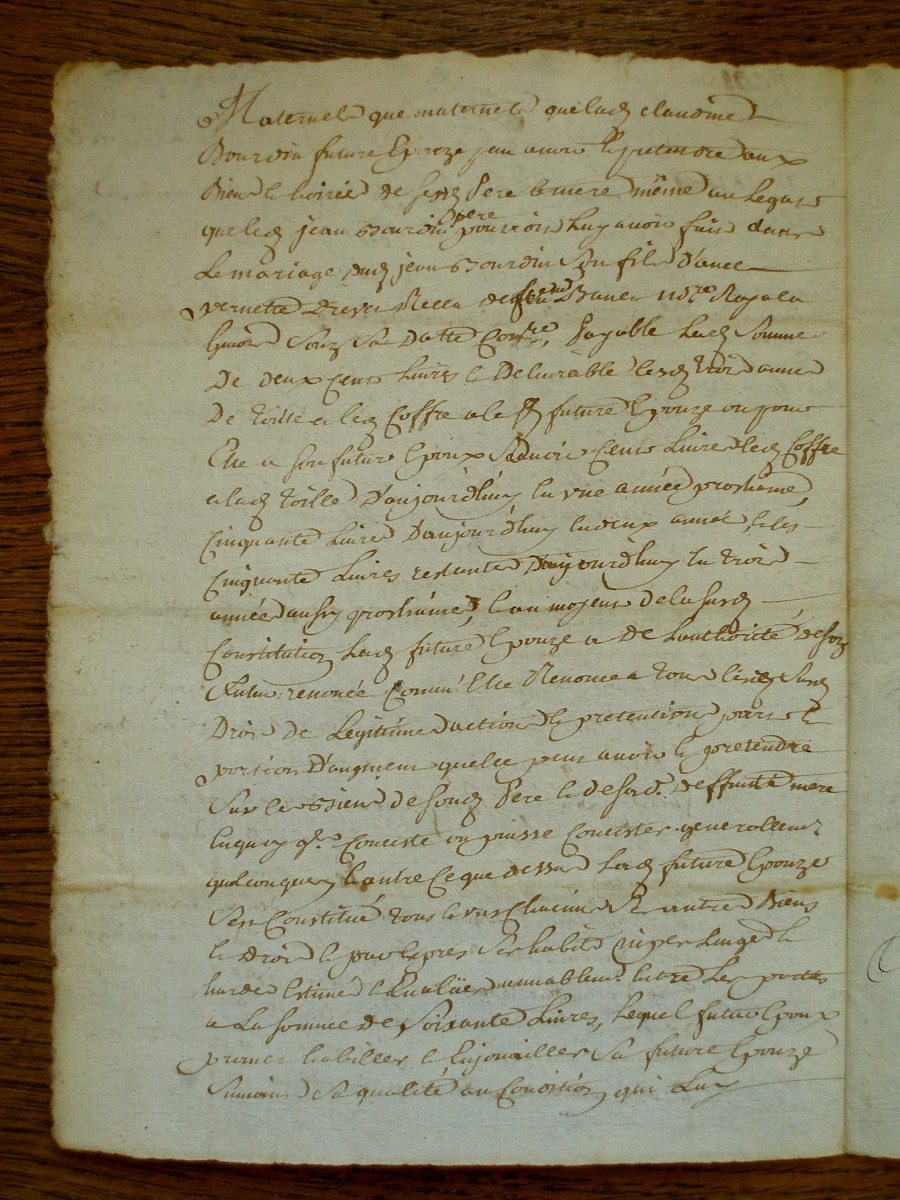 Paternel que maternel que lad claudine
Bourdin future Epouze peu avoir et pretendre aux
Biens et hoirie de sesd Pere et mere même au Legat
que led jean Bourdin pere pourroit luy avoir fait dans
Le mariage dud jean Bourdin son fils d'avec
pernette Dreve Receu de Baner no.re Royal a
sous sa datte Con.re, Payable lad Somme
De deux Cents Livres et Delivrable lesd trois aunes
De toille et led Coffre a la d future Epouze ou pour
Elle a son futur Epoux Sçavoir Cents Livres led Coffre
et lad toille D'aujourdhuy en une année prochaine,
Cinquante Livres D'aujourdhuy en deux années et les
Cinquante Livres restantes D'aujourdhuy en trois
années aussy prochaines, et au moyent de la susd
Constitution Lad future Epouze a De Lauthorité de sond
futur renoncé Comm' Elle Renonce a tous lesd susd
Droits De Légitime action et pretention part et
portion D'augment quelle peut avoir et pretendre
Sur les Biens de sond Pere et de sad. deffunte mere
En quoy q.e Conciste ou puisse Concister generallement
quelconques, Et outre Ce que dessus Lad future Epouze
S'est Constitué tous et uns Chacuns Ses autres Biens
et Droits et pour Exprès ses habits linges et
hardes Estimé et Evalüés amiablem.t Entre Les parties
a La somme de Soixante Livres, Lequel futur Epoux
promet habiller et Enjouailler Sa future Epouze
Suivant sa qualité ou Condition qui Luy